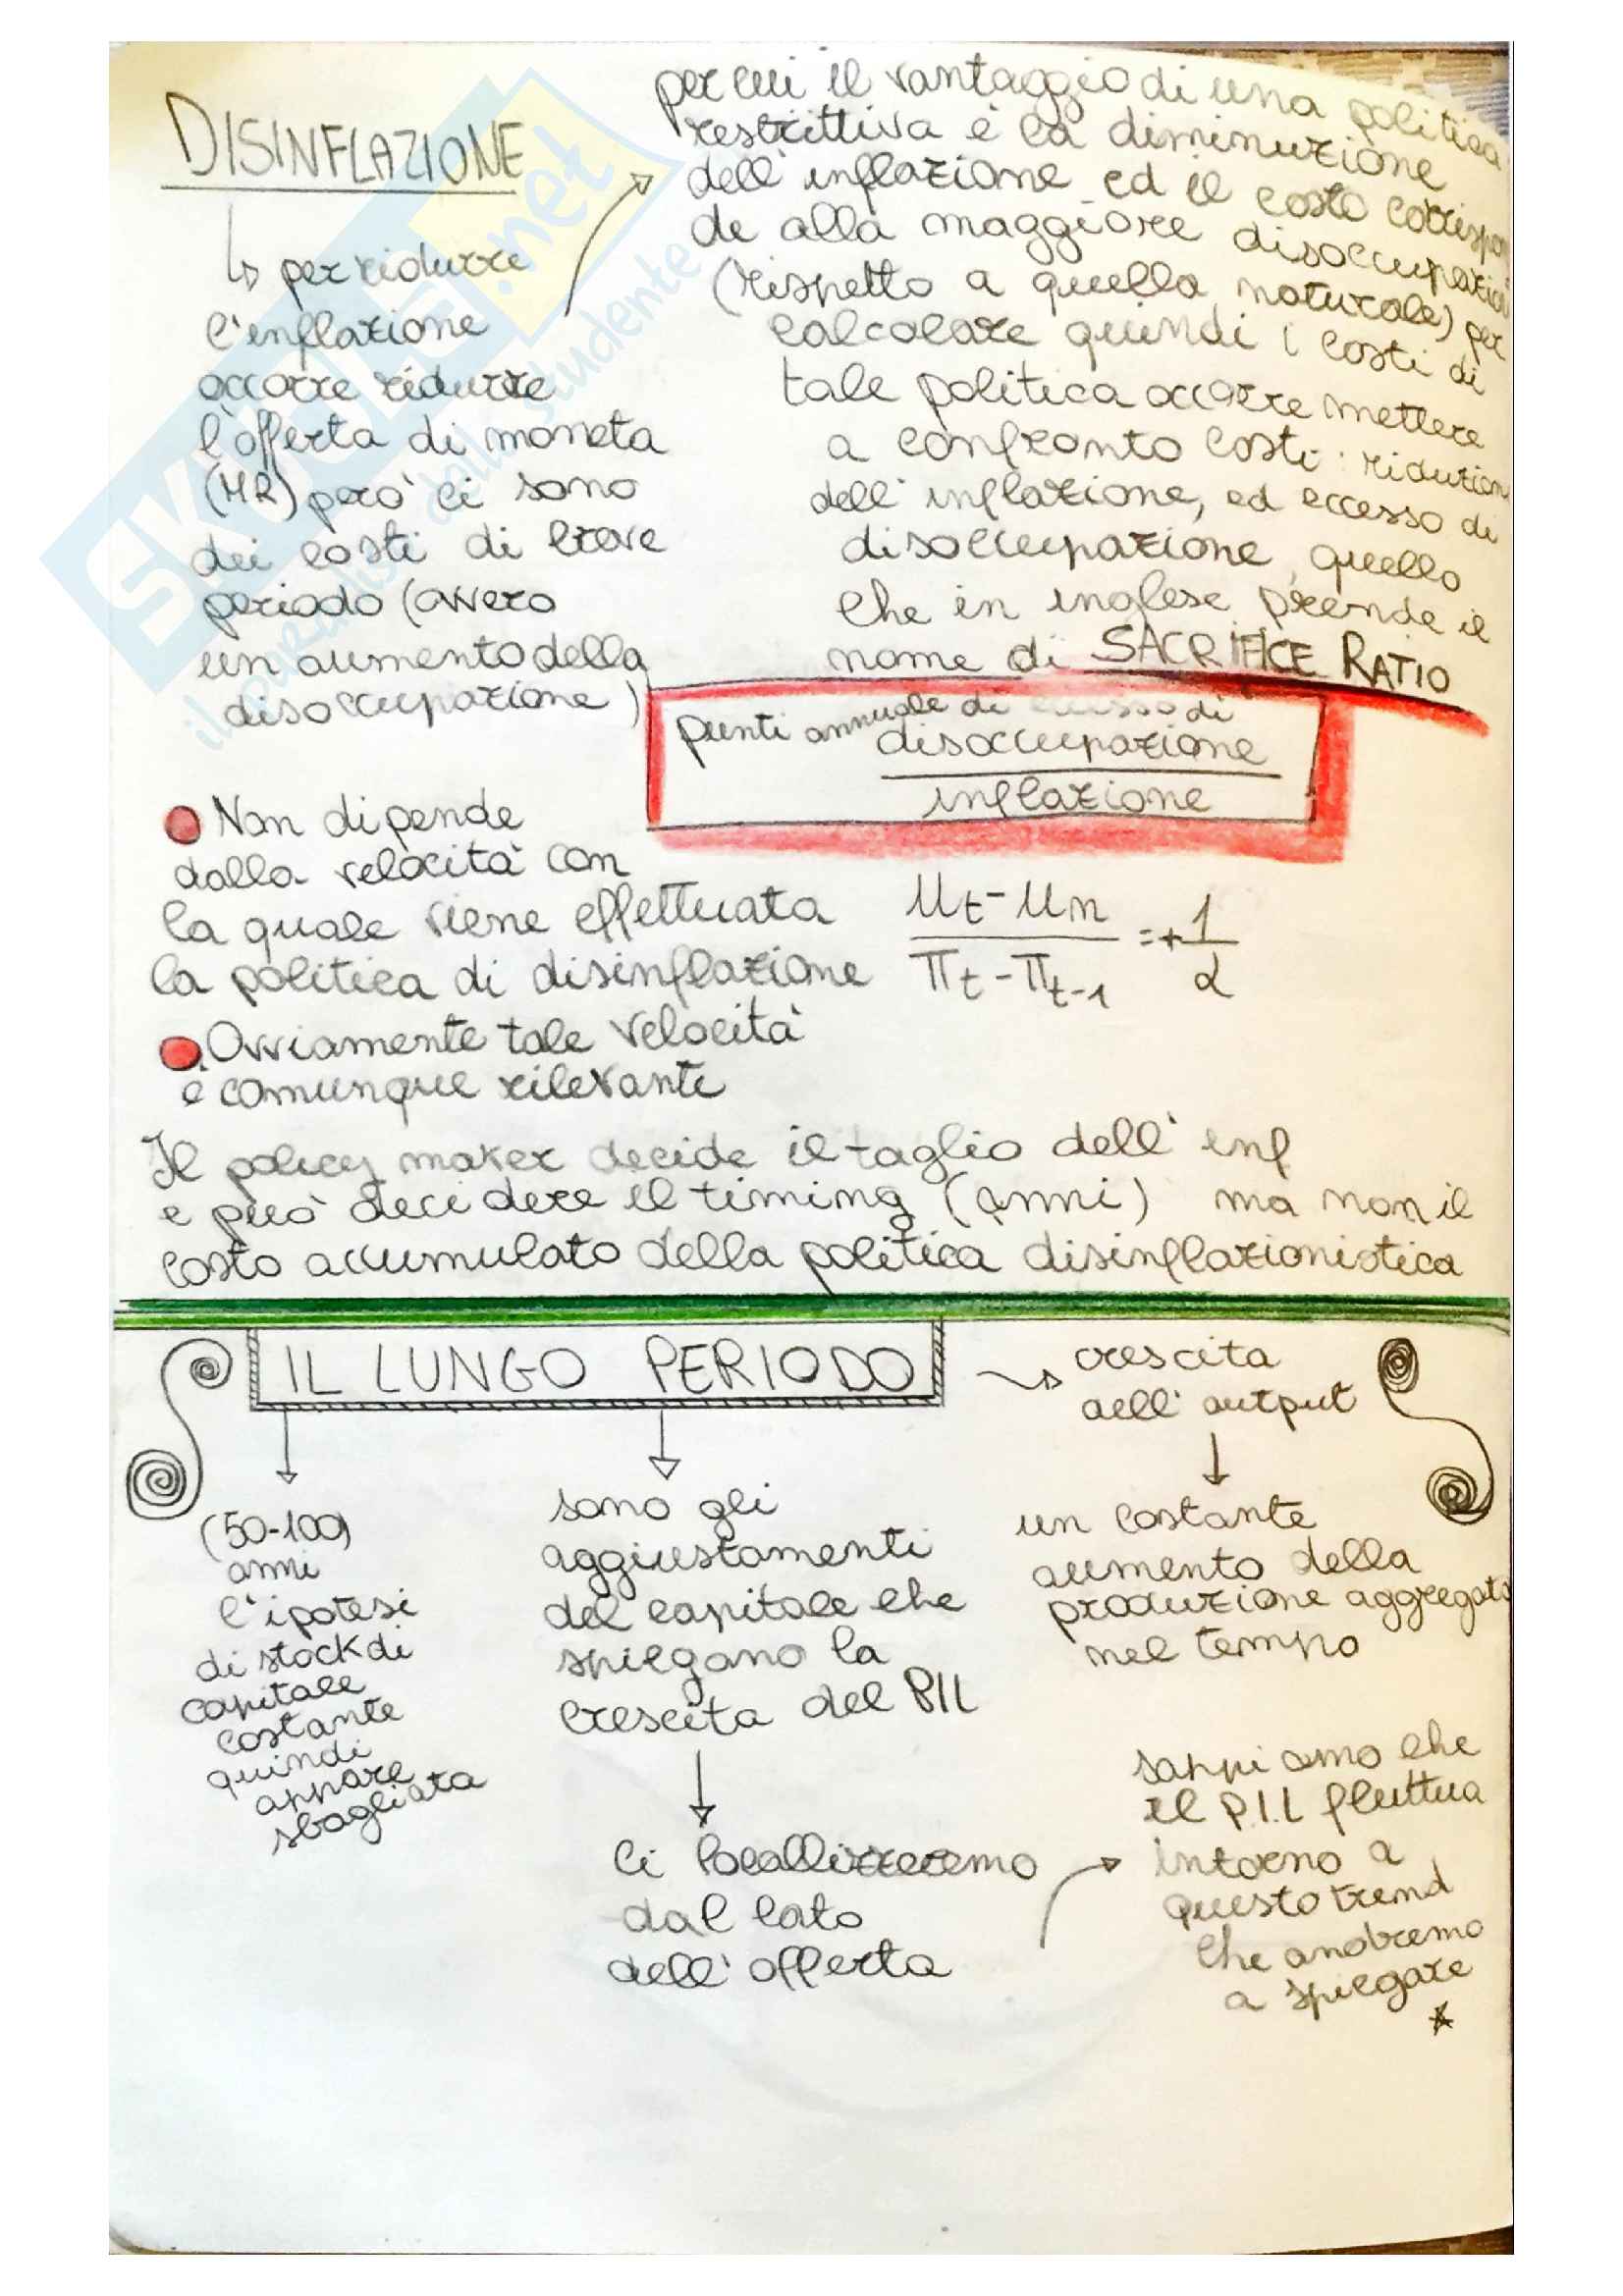 DISINFLAZIONE
↳ per ridurre
l'inflazione
occorre ridurre
l'offerta di moneta
(MR) però ci sono
dei costi di breve
periodo (ovvero
un aumento della
disoccupazione)
per cui il vantaggio di una politica
restrittiva è la diminuzione
dell'inflazione ed il costo corrispon
de alla maggiore disoccupazion
(rispetto a quella naturale) per
calcolare quindi i costi di
tale politica occorre mettere
a confronto costi: riduzion
dell'inflazione, ed eccesso di
disoccupazione, quello
che in inglese prende il
nome di SACRIFICE RATIO
punti annuale di eccesso di
disoccupazione
inflazione
Non dipende
dalla velocità con
la quale viene effettuata
la politica di disinflazione
μt - μn / πt - πt-1 = + 1/α
Ovviamente tale velocità
è comunque rilevante
Il policy maker decide il taglio dell'inf
e può decidere il timing (anni) ma non il
costo accumulato della politica disinflazionistica
IL LUNGO PERIODO
(50-100)
anni
l'ipotesi
di stock di
capitale
costante
quindi
appare
sbagliata
sono gli
aggiustamenti
del capitale che
spiegano la
crescita del PIL
ci locallizzeremo
dal lato
dell'offerta
crescita
dell'output
un costante
aumento della
produzione aggregata
nel tempo
sappiamo che
il P.I.L fluttua
intorno a
questo trend
che andremo
a spiegare
SKUOLA.net
il paradiso dello studente